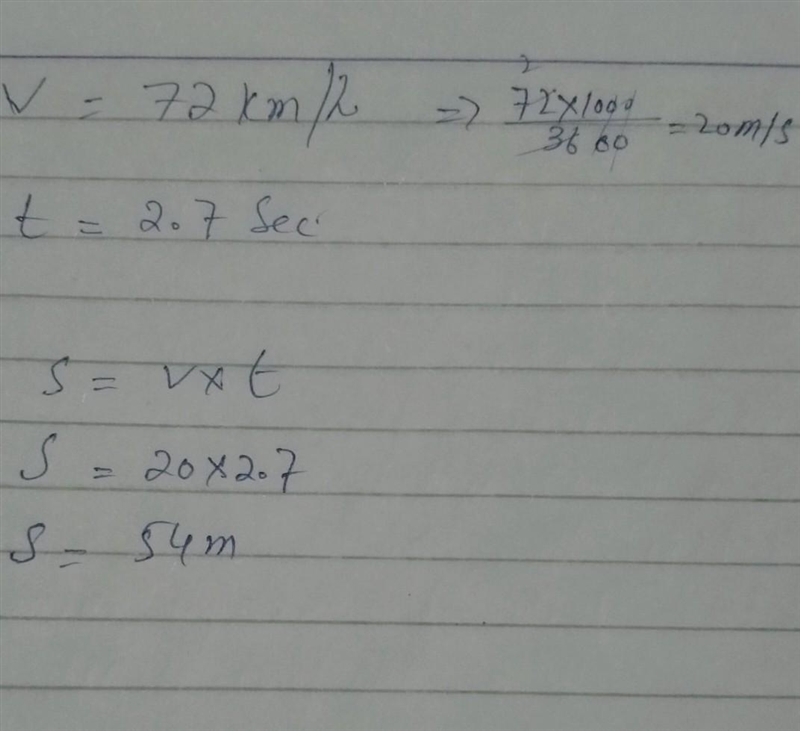 V = 72 km/h => 72x1000/3600 = 20m/s
2
t = 2.7 Sec
S = v x t
S = 20 x 2.7
S = 54m